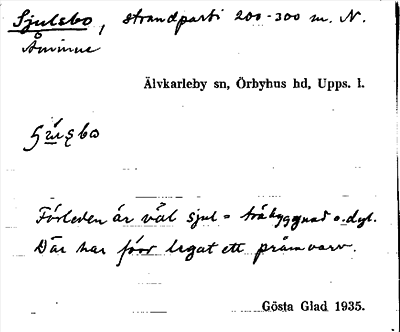 Sjulsbo, strandparti 200-300 m. N.
Åminne
Älvkarleby sn, Örbyhus hd, Upps. l.
Förleden är väl sjul = träbyggnad o. dyl.
Där har förr legat ett pråmvarv.
Gösta Glad 1935.